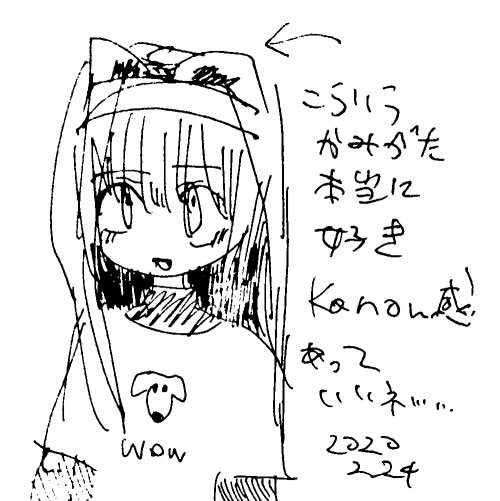 こういう
かみがた
本当に
好き
Kanon感
あって
いいネ……
2020
2.24
WOW